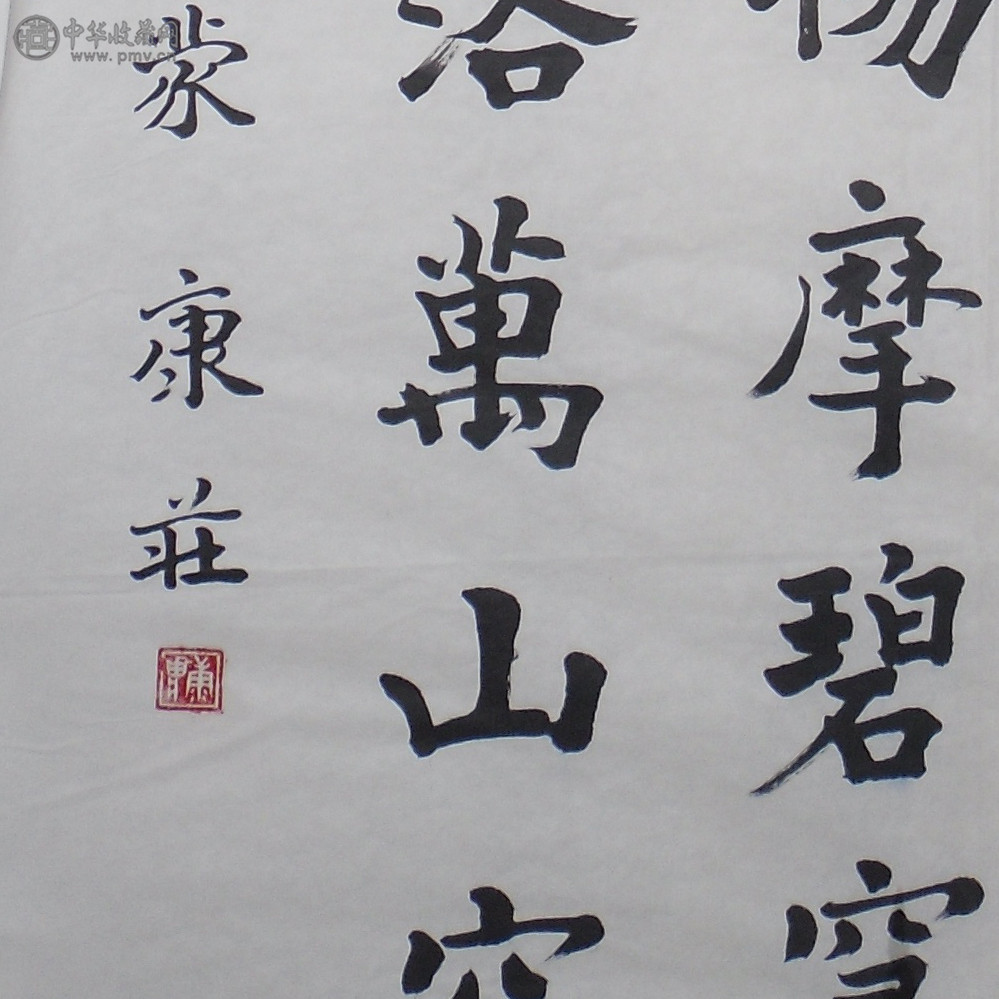 中华收藏网
www.pmv.cn
摩碧穹
萬山
蒙康莊